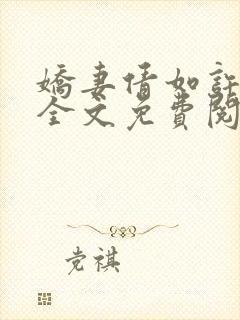 嬌妻情如許
全文免費閱
党祺